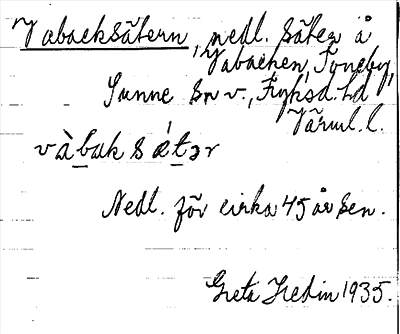 Vabacksätern, nedl. säter å
Vabacken, Toneby,
Sunne sn v., Fryksd. hd
Värml. l.
vàbak sǽtər
Nedl. för cirka 45 år sen.
Greta Hedin 1935.